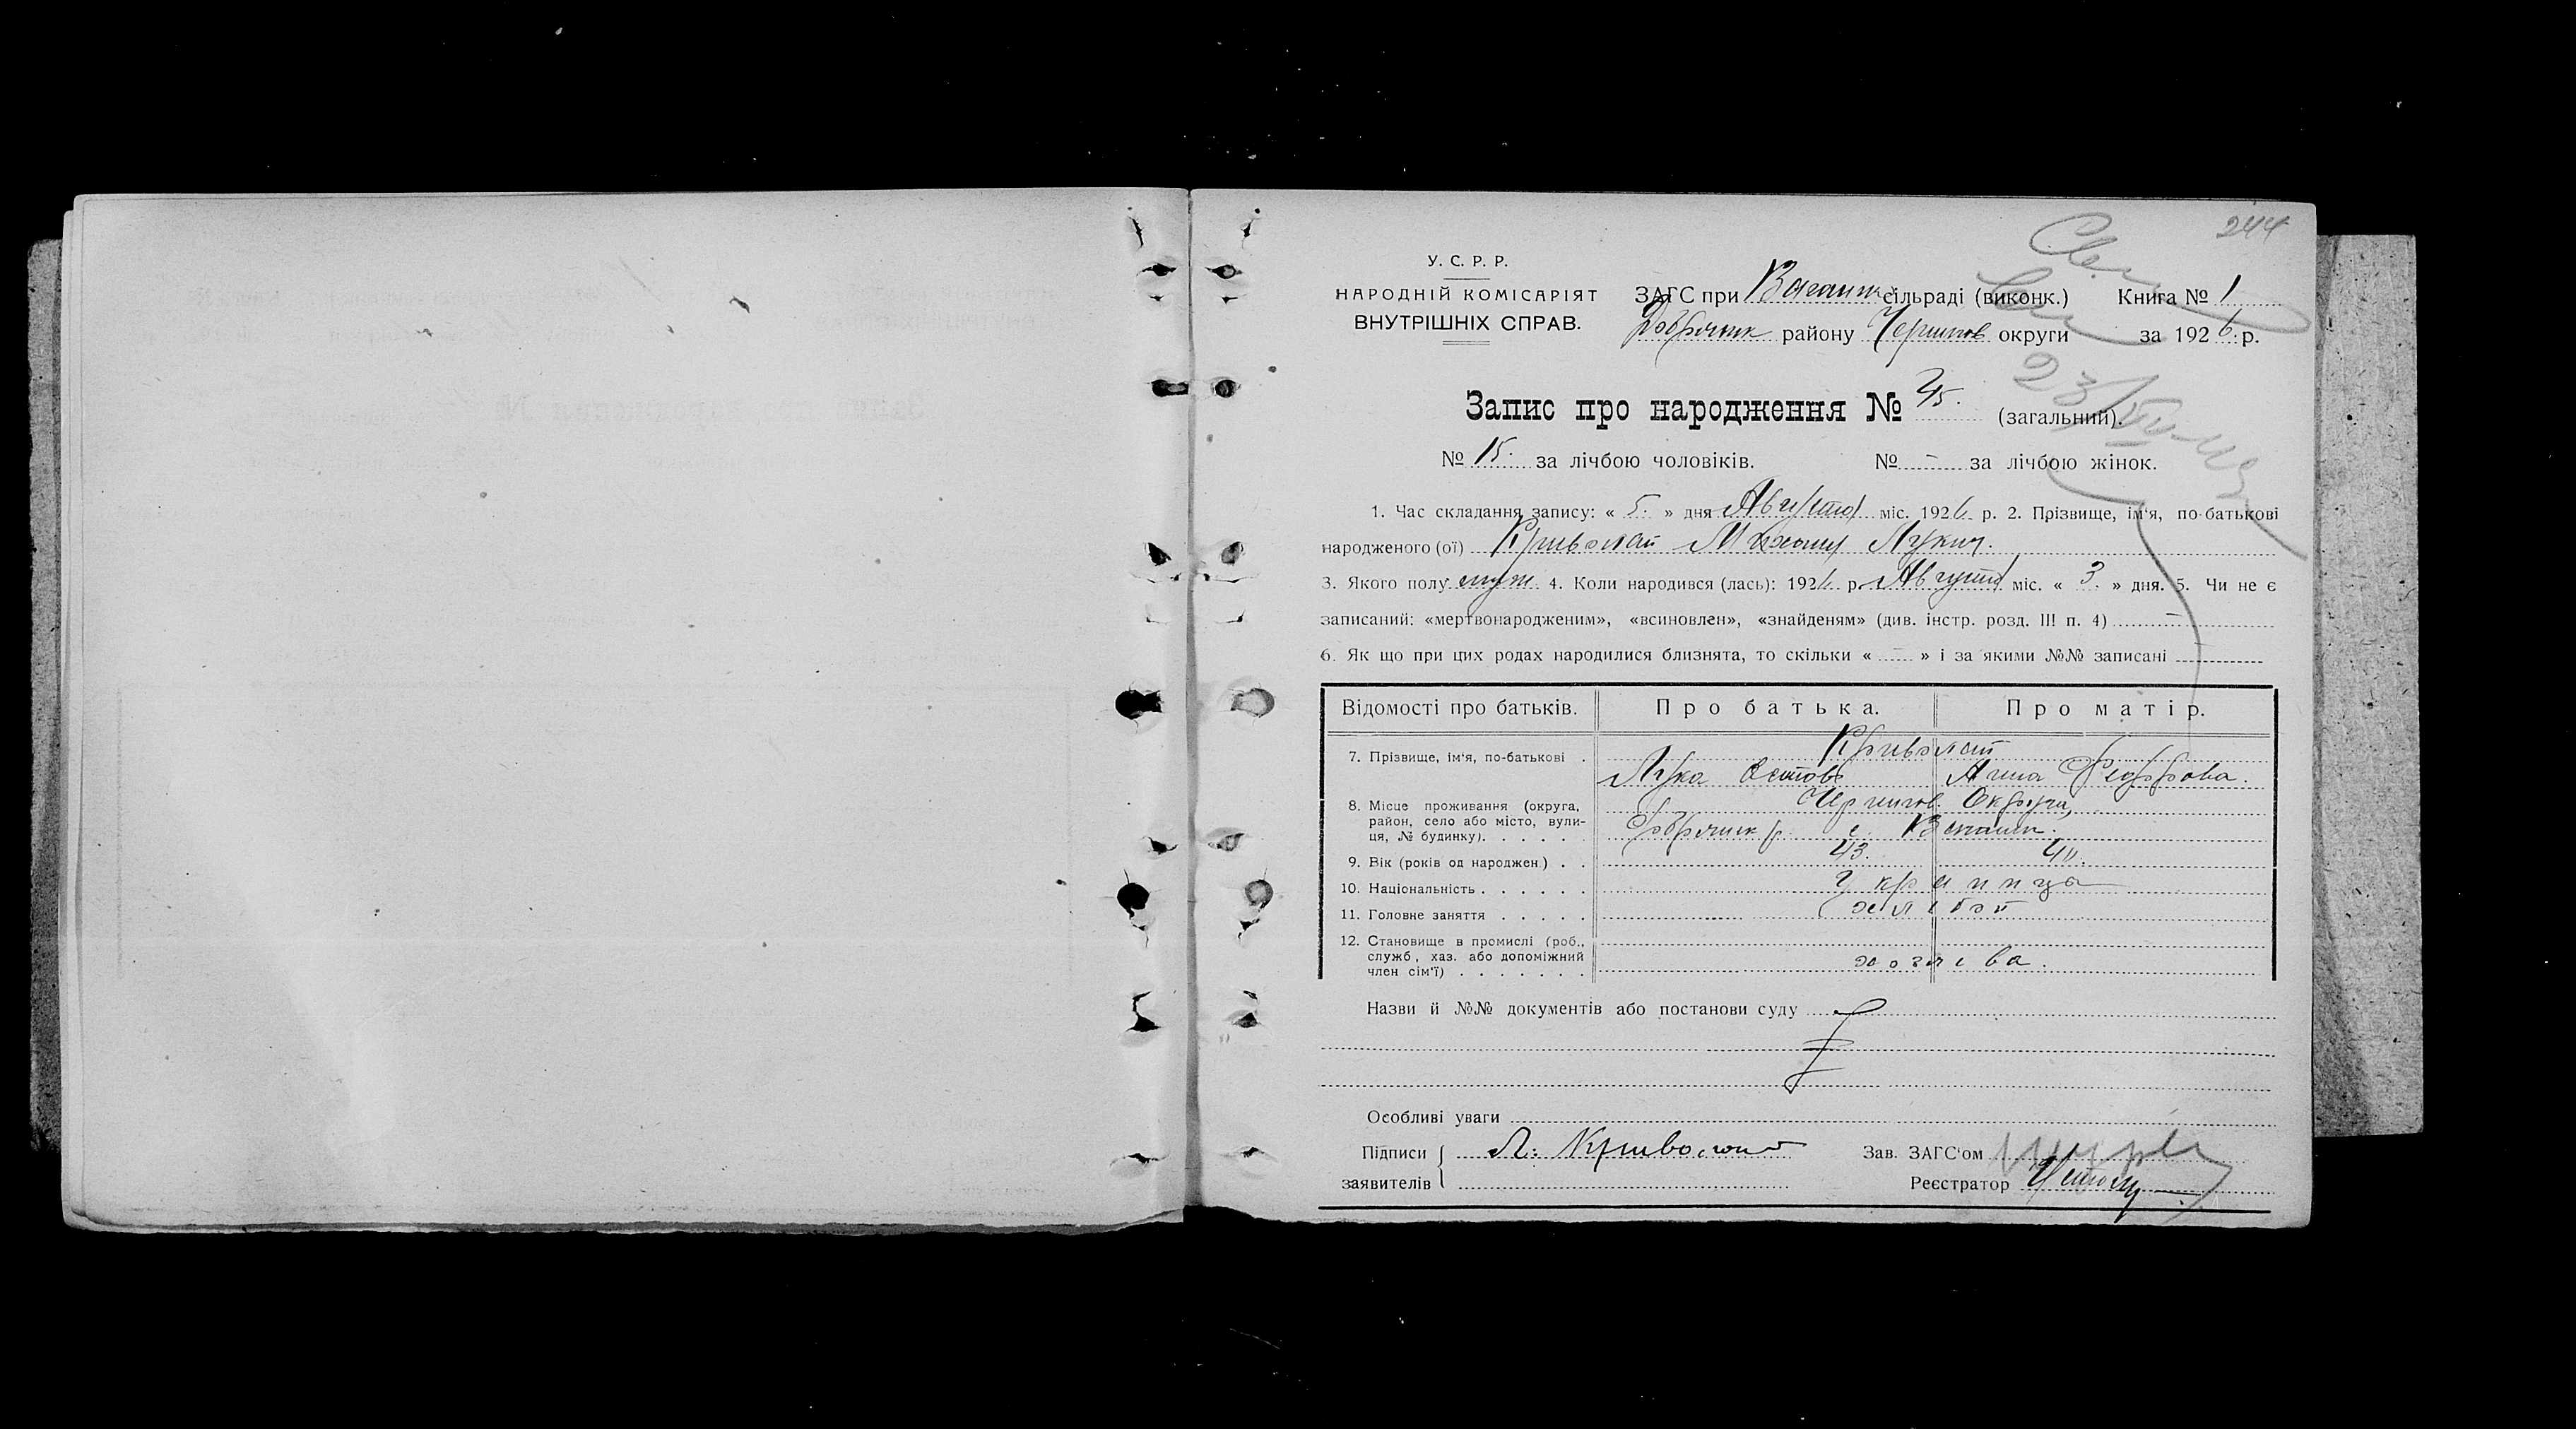 244
У. С. Р. Р.
НАРОДНІЙ КОМІСАРІЯТ
ВНУТРІШНІХ СПРАВ.
ЗАГС при сільраді (виконк.) Книга № 1
району Чернигов округи за 1926 р.
Запис про народження № 45. (загальний).
№ 15. за лічбою чоловіків. № — за лічбою жінок.
1. Час складання запису: « 5. » дня Августа міс. 1926 р. 2. Прізвище, ім'я, по-батькові
народженого (ої) Криволап Михаил Лукич.
3. Якого полу муж. 4. Коли народився (лась): 1926 р. Августа міс. « 3. » дня. 5. Чи не є
записаний: «мертвонародженим», «всиновлен», «знайденям» (див. інстр. розд. III п. 4) —
6. Як що при цих родах народилися близнята, то скільки « — » і за якими №№ записані —
Відомості про батьків. Про батька. Про матір.
7. Прізвище, ім'я, по-батькові . Криволап
Лука Анна Федорова.
8. Місце проживання (округа, район, село або місто, вулиця, № будинку). . . . . Чернигов. Округи,
с.
9. Вік (років од народжен.) . . 43. 40.
10. Національність . . . . . . Украинцы
11. Головне заняття . . . . . хлебоп
12. Становище в промислі (роб., служб, хаз. або допоміжний член сім'ї) . . . . . . . хозяева.
Назви й №№ документів або постанови суду
Особливі уваги
Підписи заявителів Л. Криволап
Зав. ЗАГС'ом
Реєстратор